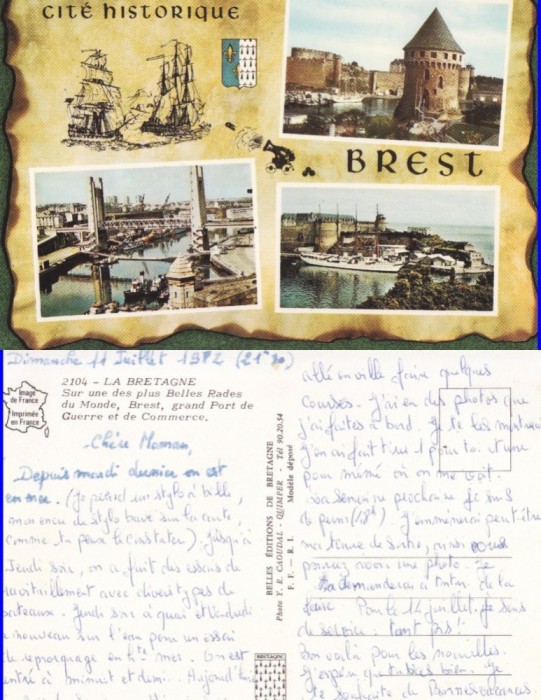 CITÉ HISTORIQUE
BREST
Dimanche 11 Juillet 1982 (21h30)
2104 - LA BRETAGNE
Sur une des plus Belles Rades
du Monde, Brest, grand Port de
Guerre et de Commerce.
Image
de France
Imprimée
en France
Chère Maman,
Depuis mardi dernier on est
en mer. (Je prend un stylo à bille,
mon encre de stylo bave sur la carte
comme tu peux le constater). Jusqu'à
Jeudi soir, on a fait des essais de
ravitaillement avec divers types de
bateaux. Jeudi soir à quai et Vendredi
de nouveau sur l'eau pour un essai
de remorquage en hte mer. On est
rentré à minuit et demi. Aujourd'hui
BELLES ÉDITIONS DE BRETAGNE
Photo Y. R. CAOUDAL - QUIMPER - Tél 90.20.54
F. F. - R. I. Modèle déposé
BRETAGNE
allé en ville faire quelques
courses. J'ai eu des photos que
j'ai faites à bord. Je te les montrerai
J'en ai fait tirer 1 pour toi et une
pour mémé où on me voit.
La semaine prochaine je suis
de perm (18h). J'emmenerai peut être
ma tenue de sortie, ainsi vous
pourrez voir une photo. Je
la demanderai à de la
faire. Pour le 14 juillet, je suis
de service: tant pis!
Bon voilà pour les nouvelles.
J'espère que tu vas bien. Je
te souhaite de